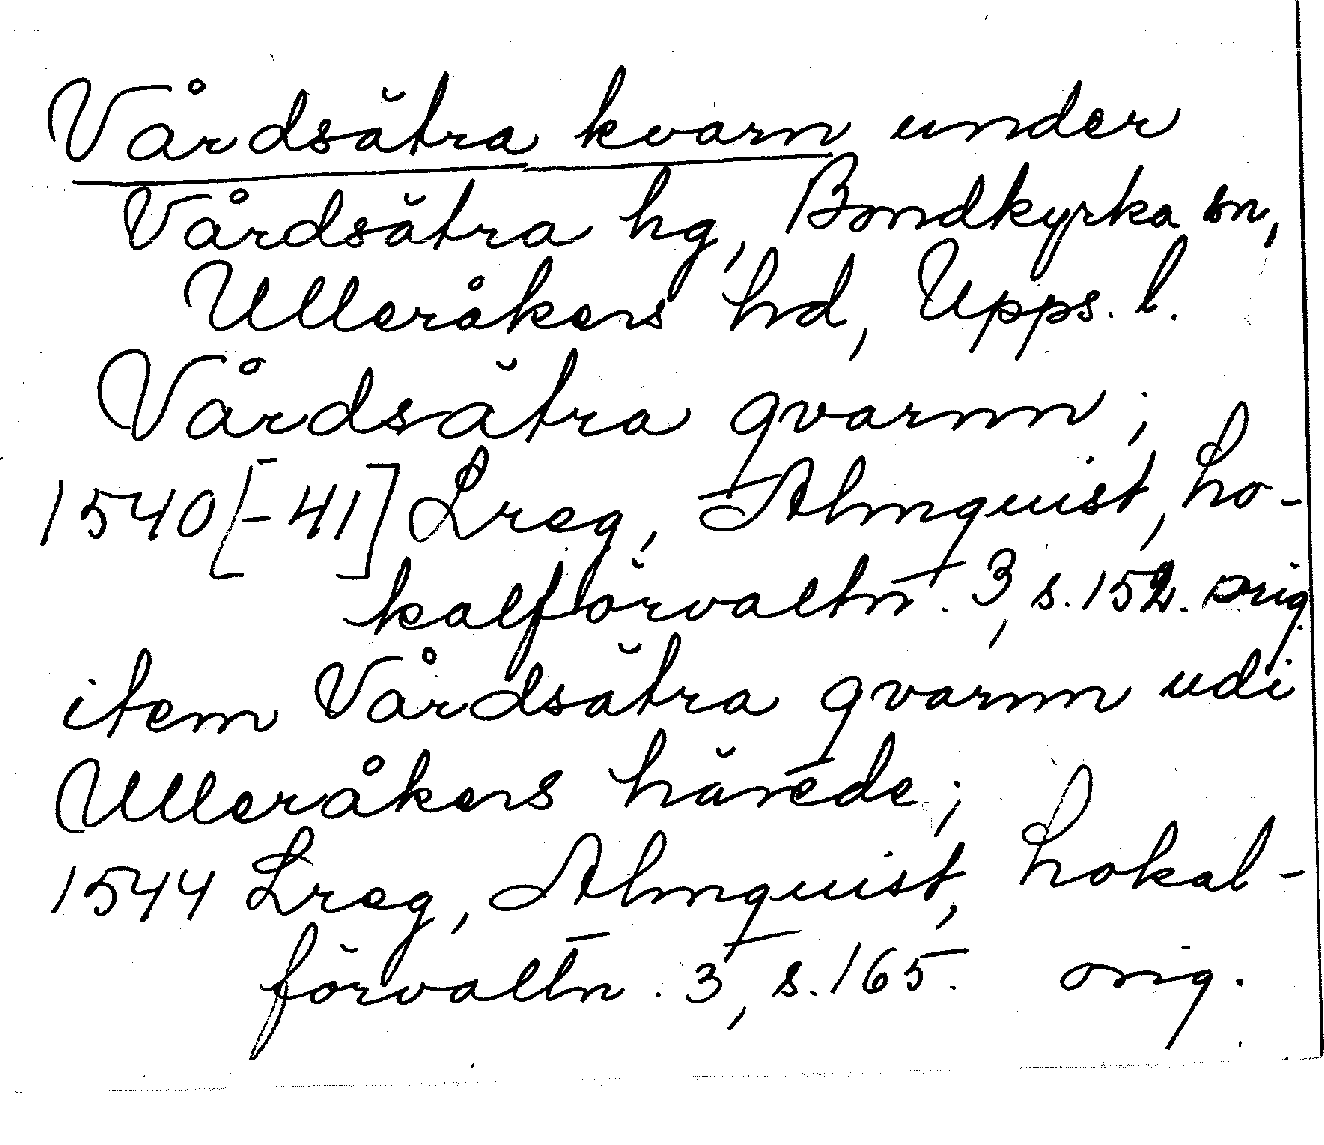 Vårdsätra kvarn under
Vårdsätra hg, Bondkyrka sn,
Ulleråkers hd, Upps. l.
Vårdsätra qvarnn;
1540[-41] Lreg, Almquist, Lo-
kalförvaltn. 3, s. 152. orig.
item Vårdsätra qvarnn udi
Ulleråkers härede;
1544 Lreg, Almquist, Lokal-
förvaltn. 3, s. 165. orig.